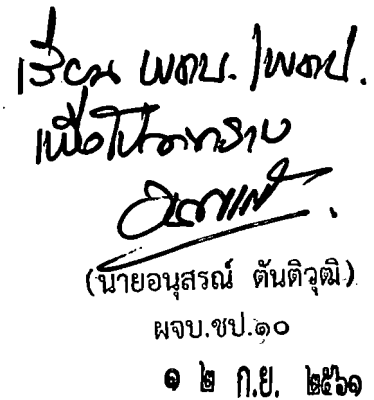 เรียน พคบ. / พคป.
เพื่อโปรดทราบ
(นายอนุสรณ์ ตันติวุฒิ)
ผจบ.ชป.๑๐
๑ ๒ ก.ย. ๒๕๖๑